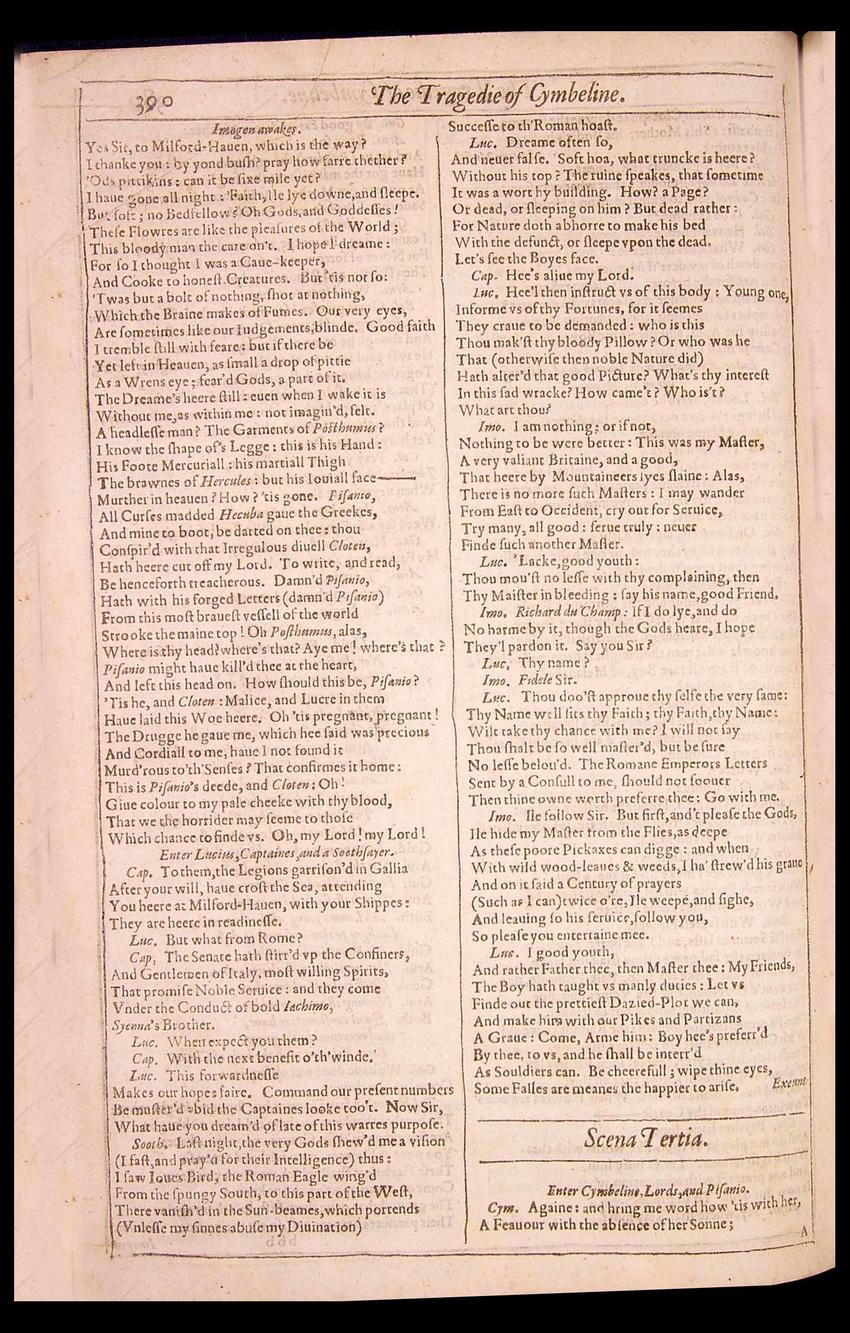 390
The Tragedie of Cymbeline.
Imogen awakes.
Yes Sir, to Milford-Hauen, which is the way?
I thanke you: by yond bush? pray how farre thether?
'Ods pittikins: can it be sixe mile yet?
I haue gone all night: 'Faith, Ile lye downe, and sleepe.
But soft; no Bedfellow? Oh Gods, and Goddesses!
These Flowres are like the pleasures of the World;
This bloody man the care on't. I hope I dreame:
For so I thought I was a Caue-keeper,
And Cooke to honest Creatures. But 'tis not so:
'Twas but a bolt of nothing, shot at nothing,
Which the Braine makes of Fumes. Our very eyes,
Are sometimes like our Iudgements, blinde. Good faith
I tremble still with feare: but if there be
Yet left in Heauen, as small a drop of pittie
As a Wrens eye; fear'd Gods, a part of it.
The Dreame's heere still: euen when I wake it is
Without me, as within me: not imagin'd, felt.
A headlesse man? The Garments of Posthumus?
I know the shape of's Legge: this is his Hand:
His Foote Mercuriall: his martiall Thigh
The brawnes of Hercules: but his Iouiall face——
Murther in heauen? How? 'tis gone. Pisanio,
All Curses madded Hecuba gaue the Greekes,
And mine to boot, be darted on thee: thou
Conspir'd with that Irregulous diuell Cloten,
Hath heere cut off my Lord. To write, and read,
Be henceforth treacherous. Damn'd Pisanio,
Hath with his forged Letters (damn'd Pisanio)
From this most brauest vessell of the world
Strooke the maine top! Oh Posthumus, alas,
Where is thy head? where's that? Aye me! where's that?
Pisanio might haue kill'd thee at the heart,
And left this head on. How should this be, Pisanio?
'Tis he, and Cloten: Malice, and Lucre in them
Haue laid this Woe heere. Oh 'tis pregnant, pregnant!
The Drugge he gaue me, which hee said was precious
And Cordiall to me, haue I not found it
Murd'rous to'th'Senses? That confirmes it home:
This is Pisanio's deede, and Cloten: Oh!
Giue colour to my pale cheeke with thy blood,
That we the horrider may seeme to those
Which chance to finde vs. Oh, my Lord! my Lord!
Enter Lucius, Captaines, and a Soothsayer.
Cap. To them, the Legions garrison'd in Gallia
After your will, haue crost the Sea, attending
You heere at Milford-Hauen, with your Shippes:
They are heere in readinesse.
Luc. But what from Rome?
Cap. The Senate hath stirr'd vp the Confiners,
And Gentlemen of Italy, most willing Spirits,
That promise Noble Seruice: and they come
Vnder the Conduct of bold Iachimo,
Syenna's Brother.
Luc. When expect you them?
Cap. With the next benefit o'th'winde.
Luc. This forwardnesse
Makes our hopes faire. Command our present numbers
Be muster'd: bid the Captaines looke too't. Now Sir,
What haue you dream'd of late of this warres purpose.
Sooth. Last night, the very Gods shew'd me a vision
(I fast, and pray'd for their Intelligence) thus:
I saw Ioues Bird, the Roman Eagle wing'd
From the spungy South, to this part of the West,
There vanish'd in the Sun-beames, which portends
(Vnlesse my sinnes abuse my Diuination)
Successe to th'Roman hoast.
Luc. Dreame often so,
And neuer false. Soft hoa, what truncke is heere?
Without his top? The ruine speakes, that sometime
It was a worthy building. How? a Page?
Or dead, or sleeping on him? But dead rather:
For Nature doth abhorre to make his bed
With the defunct, or sleepe vpon the dead.
Let's see the Boyes face.
Cap. Hee's aliue my Lord.
Luc. Hee'l then instruct vs of this body: Young one,
Informe vs of thy Fortunes, for it seemes
They craue to be demanded: who is this
Thou mak'st thy bloody Pillow? Or who was he
That (otherwise then noble Nature did)
Hath alter'd that good Picture? What's thy interest
In this sad wracke? How came't? Who is't?
What art thou?
Imo. I am nothing; or if not,
Nothing to be were better: This was my Master,
A very valiant Britaine, and a good,
That heere by Mountaineers lyes slaine: Alas,
There is no more such Masters: I may wander
From East to Occident, cry out for Seruice,
Try many, all good: serue truly: neuer
Finde such another Master.
Luc. 'Lacke, good youth:
Thou mou'st no lesse with thy complaining, then
Thy Maister in bleeding: say his name, good Friend.
Imo. Richard du Champ: If I do lye, and do
No harme by it, though the Gods heare, I hope
They'l pardon it. Say you Sir?
Luc. Thy name?
Imo. Fidele Sir.
Luc. Thou doo'st approue thy selfe the very same:
Thy Name well fits thy Faith; thy Faith, thy Name:
Wilt take thy chance with me? I will not say
Thou shalt be so well master'd, but be sure
No lesse belou'd. The Romane Emperors Letters
Sent by a Consull to me, should not sooner
Then thine owne worth preferre thee: Go with me.
Imo. Ile follow Sir. But first, and't please the Gods,
Ile hide my Master from the Flies, as deepe
As these poore Pickaxes can digge: and when
With wild wood-leaues & weeds, I ha' strew'd his graue
And on it said a Century of prayers
(Such as I can) twice o're, Ile weepe, and sighe,
And leauing so his seruice, follow you,
So please you entertaine mee.
Luc. I good youth,
And rather Father thee, then Master thee: My Friends,
The Boy hath taught vs manly duties: Let vs
Finde out the prettiest Dazied-Plot we can,
And make him with our Pikes and Partizans
A Graue: Come, Arme him: Boy hee's preferr'd
By thee, to vs, and he shall be interr'd
As Souldiers can. Be cheerefull; wipe thine eyes,
Some Falles are meanes the happier to arise. Exeunt
Scena Tertia.
Enter Cymbeline, Lords, and Pisanio.
Cym. Againe: and bring me word how 'tis with her,
A Feauour with the absence of her Sonne;
A